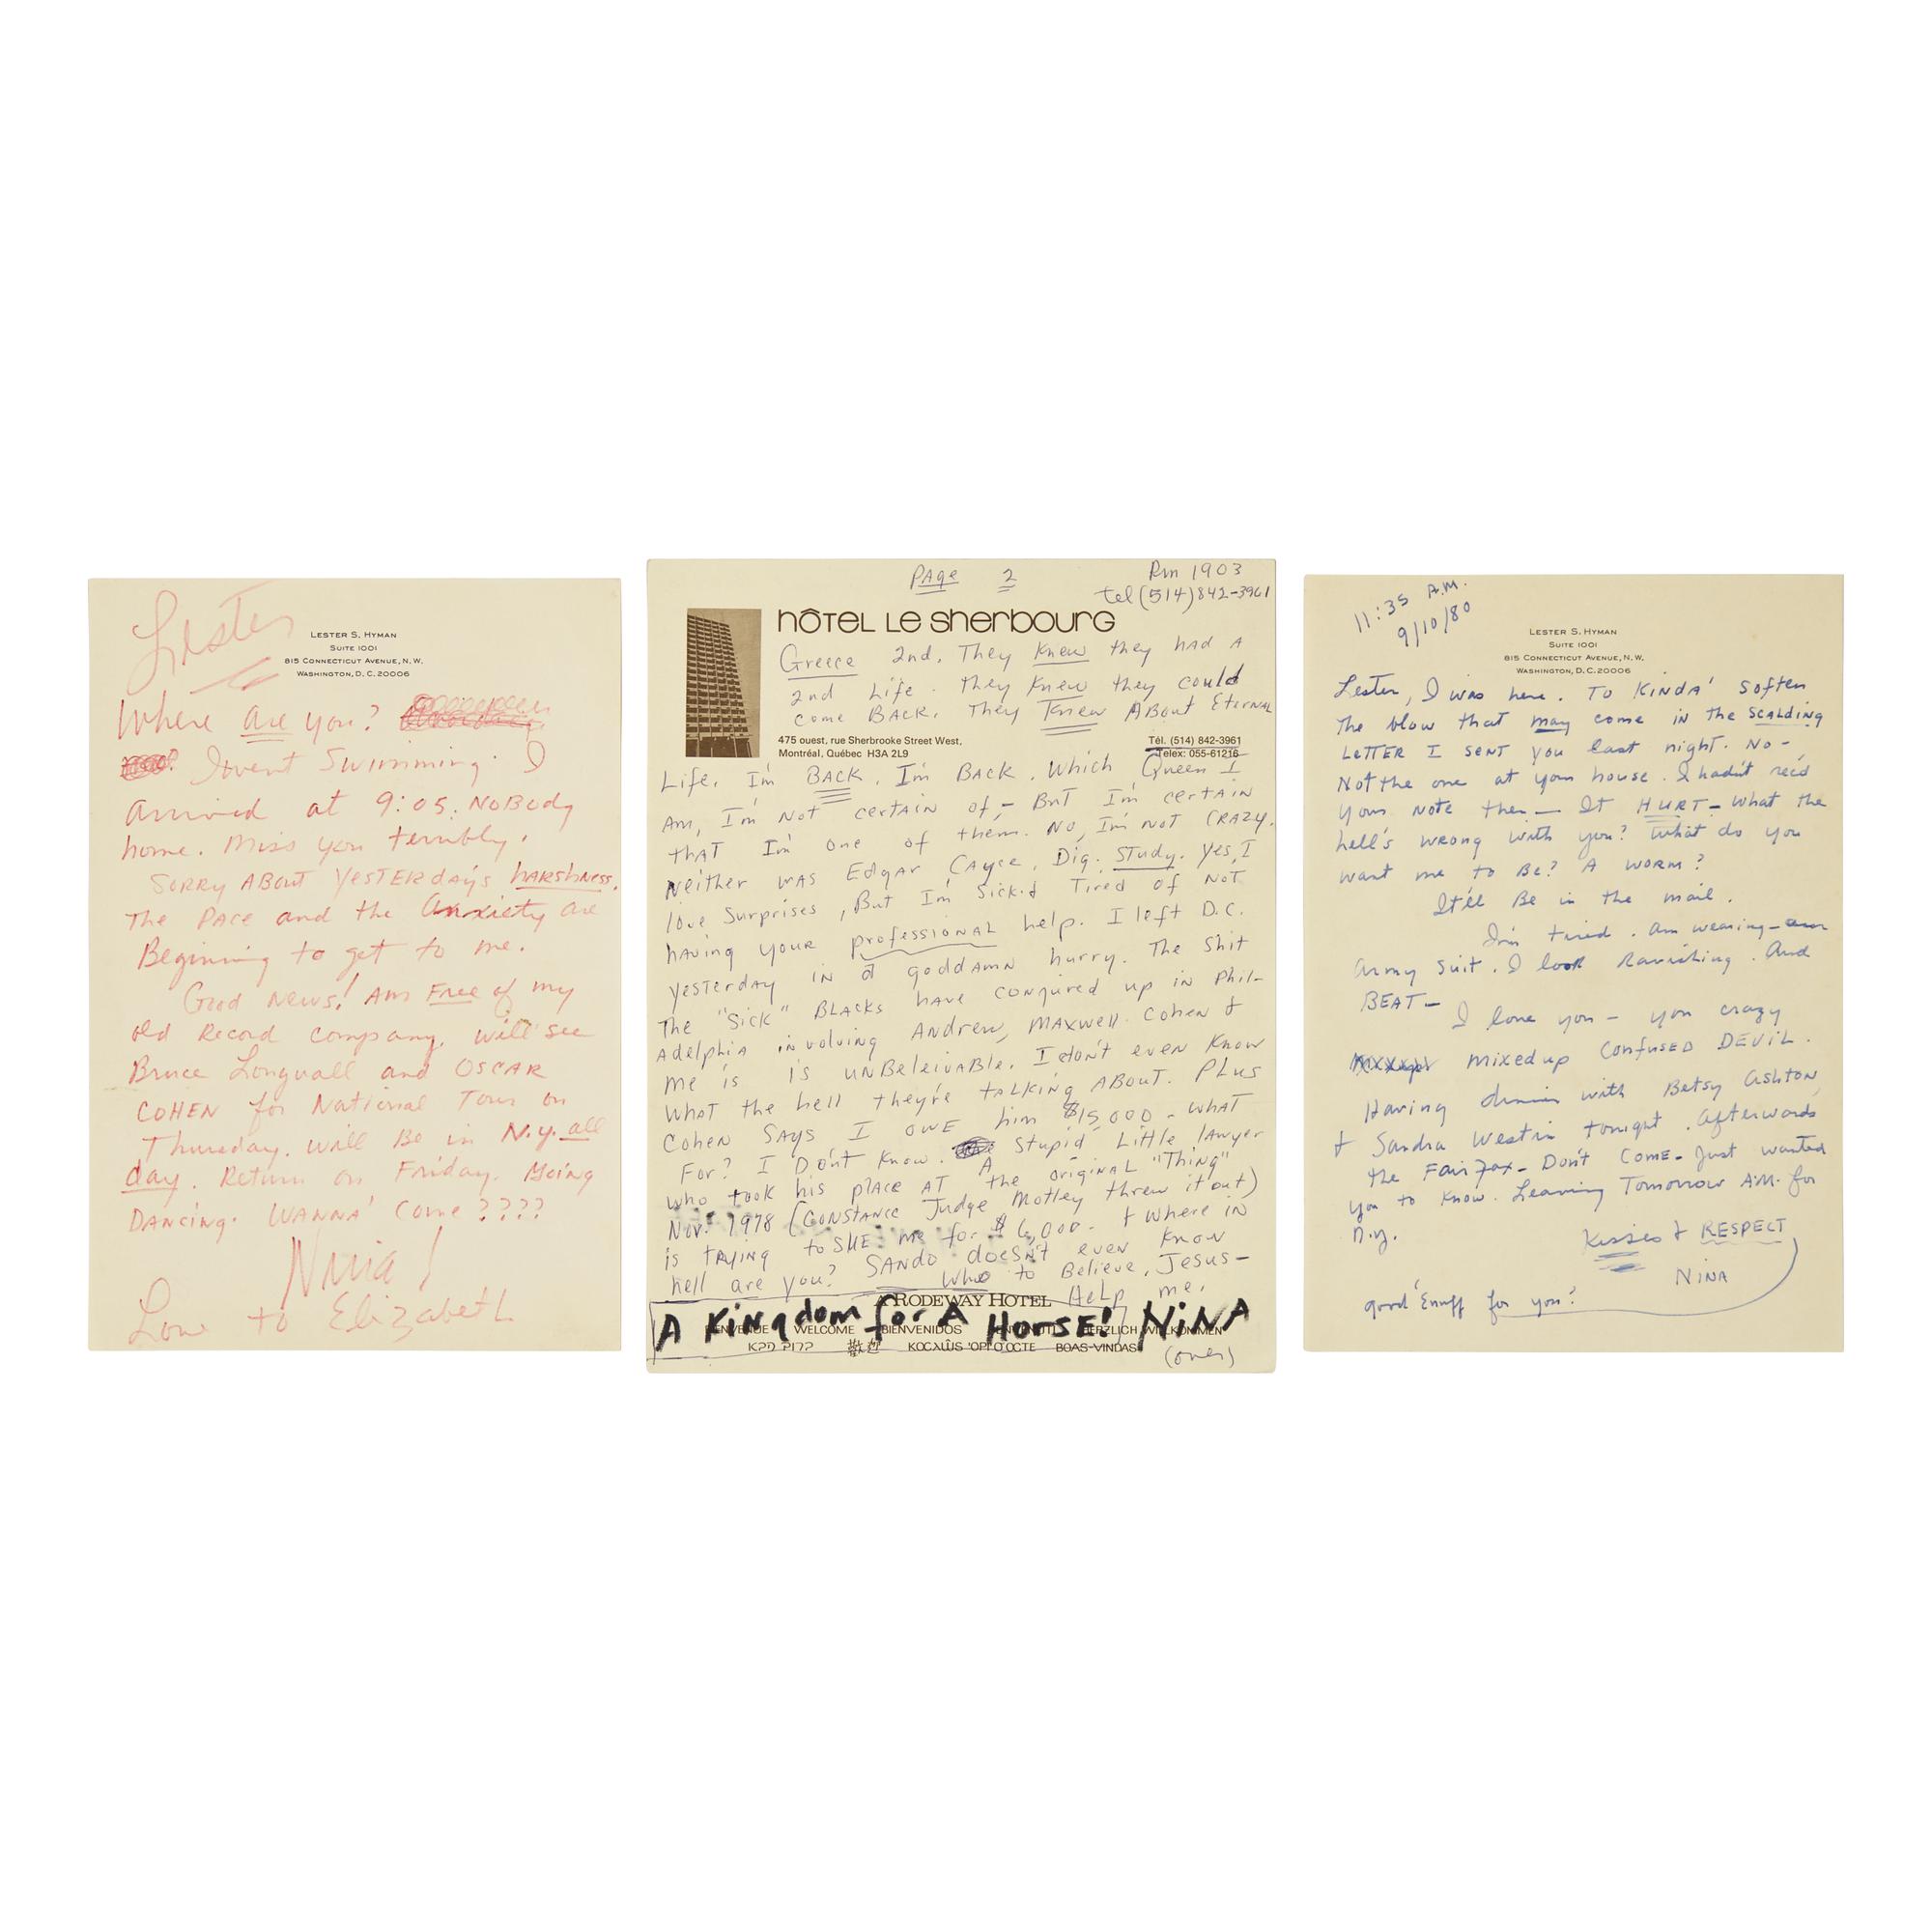 Lester
LESTER S. HYMAN
SUITE 1001
815 CONNECTICUT AVENUE, N.W.
WASHINGTON, D.C. 20006
Where are you?
I went Swimming. I
Arrived at 9:05. NOBODY
home. Miss you terribly.
SORRY ABOUT YESTERDAYS HARSHNESS.
The PACE and the Anxiety are
Beginning to get to me.
Good News! Am Free of my
old Record company. will see
Bruce Longvall and OSCAR
COHEN for National Tour on
Thursday. will Be in N.Y. all
day. Return on Friday. Going
DANcing. WANNA' Come????
Nina!
Love to Elizabeth
PAge 2
Rm 1903
tel (514) 842-3961
hôtel le sherbourg
Greece 2nd. They Knew they had A
2nd Life. They Knew they could
come BACK. They Knew About Eternal
475 ouest, rue Sherbrooke Street West,
Montréal, Québec H3A 2L9
Tél. (514) 842-3961
Telex: 055-61216
Life. I'm BACK. I'm BACK. Which Queen I
Am, I'm Not certain of,- But I'm certain
that I'm one of them. No, I'm not CRAZY.
Neither was Edgar Cayce. Dig. Study. yes, I
love Surprises, But I'm Sick & Tired of Not
having your professional help. I left D.C.
yesterday in a goddamn hurry. The Shit
The "Sick" BLACKs have conjured up in Phil-
Adelphia involving Andrew, MAXwell Cohen &
me is is unBeleivABle. I don't even Know
What the hell they're tALKing ABout. PLus
Cohen SAys I OWE him $15,000 - WHAT
For? I Don't Know. A Stupid Little lawyer
who took his place AT the original "Thing"
Nov. 1978 (CONSTANCE Judge Motley threw it out)
is trying to SUE me for $6,000. & Where in
hell are you? SANDO doesn't even know
Who to Believe. Jesus-
HeLp me.
A RODEWAY HOTEL
A Kingdom for A HORSE! NiNA
BIENVENUE WELCOME BIENVENIDOS BENVENUTI HERZLICH WILLKOMMEN
BOAS-VINDAS
(over)
11:35 A.M.
9/10/80
LESTER S. HYMAN
SUITE 1001
815 CONNECTICUT AVENUE, N.W.
WASHINGTON, D.C. 20006
Lester, I was here. To KINDA' soften
the blow that may come in the SCALDING
LETTER I sent you last night. No -
Not the one at your house. I hadn't rec'd
your note then — It HURT - What the
hell's wrong with you? What do you
want me to Be? A worm?
It'll Be in the mail.
I'm tired. Am wearing - an
army suit. I look Ravishing. And
BEAT -
I love you - you crazy
mixed up CONFUSED DEVIL.
Having dinner with Betsy Ashton,
& Sandra Westin tonight. Afterwards
the FAirfax - Don't COME - Just wanted
you to Know. Leaving Tomorrow AM. for
N.Y.
Kisses & RESPECT
NiNA
good 'Enuff for you?